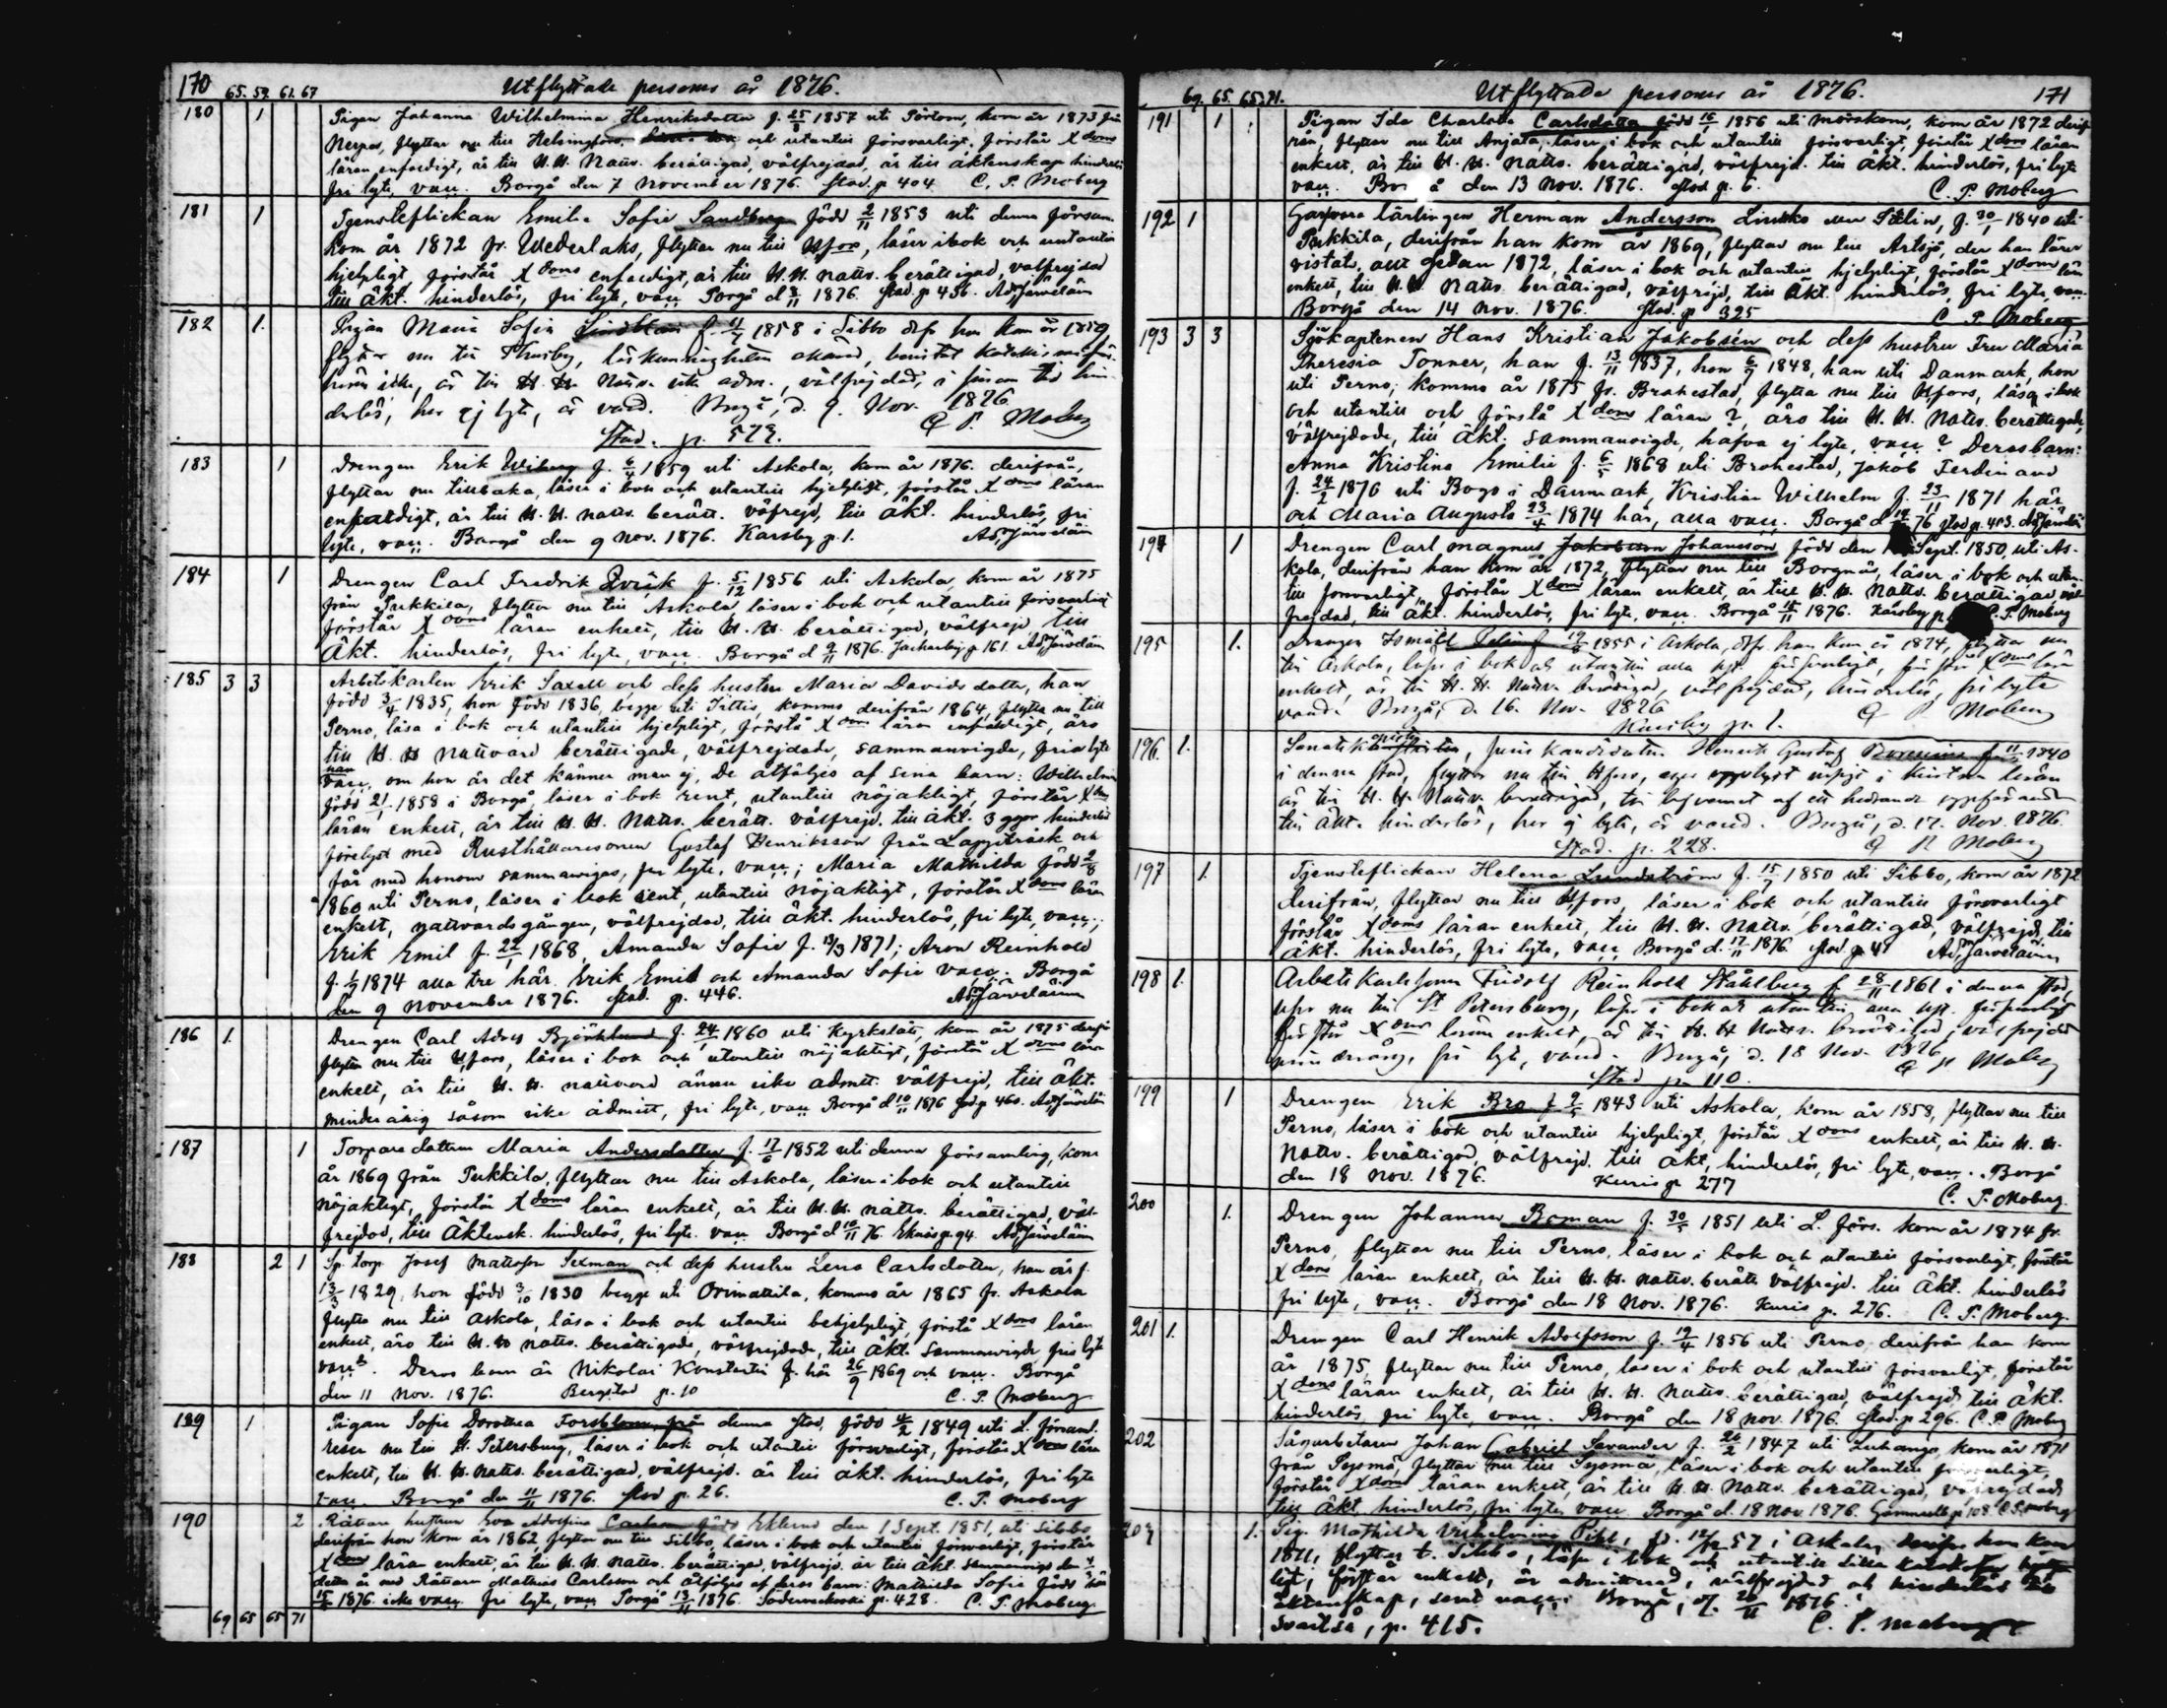 170 65. 59. 61. 67 Utflyttade persones år 1876.
180 1 Pigan Johanna Wilhelmina Henriksdotter f. 25/8 1857 uti Pörtom, kom år 1873 från
Nerpes, flyttar nu till Helsingfors, och utantill försvarligt, förstår Xdoms
läran enfaldigt, är till H.H. Nattv. berättigad, välfrejdad, är till äktenskap hinderlös
fri lyte, vacc. Borgå den 7 November 1876. Stad. p 404 C. P. Moberg
181 1 Tjensteflickan Emilia Sofie Sandberg född 2/11 1853 uti denna försam.
kom år 1872 fr. Wederlaks, flyttar nu till Hfors, läser i bok och utantill
hjelpligt, förstår Xdoms enfaldigt, är till H.H. nattv. berättigad, välfrejdad
till äkt. hinderlös, fri lyte, vacc. Borgå d 8/11 1876. Stad. p 436. Ad. Järveläin
182 1. Pigan Maria Sofia Lindblom f. 11/7 1858 i Sibbo dfr hon kom år 1859
flyttar nu till Thusby,
är till H. H. Nattv. icke adm., välfrejdad,
derlös, har ej lyte, är vacc. Borgå, d. 9. Nov. 1876
Stad. p. 579. C. P. Moberg
183 1 Drengen Erik Wiberg f. 6/4 1859 uti Askola, kom år 1876. derifrån,
flyttar nu tillbaka, läser i bok och utantill hjelpligt, förstår Xdoms läran
enfaldigt, är till H.H. nattv. berätt. välfrejd, till äkt. hinderlös, fri
lyte, vacc. Borgå den 9 Nov. 1876. Karsby p. 1. Ad. Järveläin
184 1 Drengen Carl Fredrik Qvick f. 5/12 1856 uti Askola, kom år 1875
från Pukkila, flyttar nu till Askola, läser i bok och utantill försvarligt
förstår Xdoms läran enkelt, till H.H. berättigad, välfrejd, till
äkt. hinderlös, fri lyte, vacc. Borgå d 9/11 1876. Jackarby p 161. Ad. Järveläin
185 3 3 Arbetskarlen Erik Saxell och dess hustru Maria Davidsdotter, han
född 3/4 1835, hon född 1836, begge uti Sittis, komma derifrån 1864, flytta nu till
Perno, läsa i bok och utantill hjelpligt, förstå Xdoms läran enfaldigt, äro
till H H nattvard berättigade, välfrejdade, sammanvigde, fria lyte
han vacc, om hon är det känner man ej, De åtföljes af sina barn: Wilhelmina
född 21/1 1858 i Borgå, läser i bok rent, utantill nöjaktigt, förstår Xdoms
läran enkelt, är till H.H. Nattv. berätt. välfrejd. till äkt. 3 ggor hinderlöst
förelyst med Rusthållaresonen Gustaf Henriksson från Lappträsk och
får med honom sammanvigas, fri lyte, vacc.; Maria Mathilda född 2/8
1860 uti Perno, läser i bok rent, utantill nöjaktigt, förstår Xdoms läran
enkelt, nattvardsgången, välfrejdad, till äkt. hinderlös, fri lyte, vacc.;
Erik Emil f. 22/1 1868, Amanda Sofie f. 13/3 1871; Aron Reinhold
f. 1/7 1874 alla tre här. Erik Emil och Amanda Sofie vacc. Borgå
den 9 november 1876. Stad. p. 446. Ad. Järveläin
186 1. Drengen Carl Adolf Björklund f. 24/1 1860 uti Kyrkslätt, kom år 1875 derifr.
flyttar nu till Hfors, läser i bok och utantill nöjaktigt, förstår Xdoms läran
enkelt, är till H. H. nattvard ännu icke admitt. välfrejd, till äkt.
minderårig såsom icke admitt, fri lyte, vacc Borgå d 10/11 1876 Stad. p 460. Ad. Järveläin
187 1 Torparedottern Maria Andersdotter f. 17/6 1852 uti denna församling, kom
år 1869 från Pukkila, flyttar nu till Askola, läser i bok och utantill
nöjaktigt, förstår Xdoms läran enkelt, är till H.H. nattv. berättigad, väl-
frejdad, till äktensk. hinderlös, fri lyte. vacc Borgå d 10/11 76. Eknäs p. 94. Ad. Järveläin
188 2 1 Sp. torp. Josef Mattsson Sexman och dess hustru Lena Carlsdotter, han är f.
13/3 1829, hon född 3/10 1830 begge uti Orimattila, komma år 1865 fr. Askola
flytta nu till Askola, läsa i bok och utantill behjelpligt, förstå Xdoms läran
enkelt, äro till H.H nattv. berättigade, välfrejdade, till äkt. sammanvigde fria lyte
vacc. Deras barn är Nikolai Konstantin f. här 26/9 1869 och vacc. Borgå
den 11 Nov. 1876. Bergstad p. 10 C. P. Moberg
189 1 Pigan Sofie Dorothea Forsblom från denna stad, född 4/2 1849 uti L. församl.
reser nu till St. Petersburg, läser i bok och utantill försvarligt, förstår Xdoms läran
enkelt, till H.H. nattv. berättigad, välfrejd. är till äkt. hinderlös, fri lyte
vacc. Borgå den 11/11 1876. Stad p. 26. C. P. Moberg
190 2 Rättare hustrun Eva Adolfina Carlsson född Eklund den 1 Sept. 1851, uti Sibbo,
derifrån hon kom år 1862, flyttar nu till Sibbo, läser i bok och utantill försvarligt, förstår
Xdoms läran enkelt, är till H.H. nattv. berättigad, välfrejd. är till äkt. sammanvigd den
detta år med Rättaren Mathias Carlsson och åtföljes af deras barn: Mathilda Sofia född här
15/5 1876. icke vacc. fri lyte, vacc Borgå 13/11 1876. Söderveckoski p. 428. C. P. Moberg
69 65 65 71
69. 65. 65. 71. Utflyttade persones år 1876. 171
191 1 Pigan Ida Charlotta Carlsdotter född 16/1 1856 uti Mörskom, kom år 1872 derif-
rån, flyttar nu till Anjala, läser i bok och utantill försvarligt, förstår Xdoms läran
enkelt, är till H. H. Nattv. berättigad, välfrejd. till äkt. hinderlös, fri lyte
vacc. Borgå den 13 Nov. 1876. Stad p. 6. C. P. Moberg
192 1 Garfvare lärlingen Herman Andersson Linsko eller Stélin, f. 30/1 1840 uti
Pukkila, derifrån han kom år 1869, flyttar nu till Artsjö, der han lärer
vistats allt sedan 1872, läser i bok och utantill hjelpligt, förstår Xdoms län
enkelt, till H.H. Nattv. berättigad, välfrejd, till äkt. hinderlös, fri lyte, vacc.
Borgå den 14 Nov. 1876. Stad. p 325 C. P. Moberg
193 3 3 Sjökaptenen Hans Kristian Jakobsén och dess hustru Fru Maria
Theresia Tonner, han f. 13/11 1837, hon 6/7 1848, han uti Danmark, hon
uti Perno, komma år 1875 fr. Brahestad, flytta nu till Hfors, läsa i bok
och utantill och förstå Xdoms läran ?, äro till H.H. Nattv. berättigade,
välfrejdade, till äkt. sammanvigde, hafva ej lyte, vacc ? Deras barn:
Anna Kristina Emilie f. 6/5 1868 uti Brahestad, Jakob Ferdinand
f. 24/2 1870 uti Bogö i Danmark, Kristian Wilhelm f. 23/11 1871 här
och Maria Augusta 23/4 1874 här, alla vacc. Borgå d 76 Stad p. 413. Ad. Järveläin
194 1 Drengen Carl Magnus Jakobsson Johansson född den Sept. 1850, uti As-
kola, derifrån han kom år 1872, flyttar nu till Borgnäs, läser i bok och utan-
till försvarligt, förstår Xdoms läran enkelt, är till H. H. Nattv. berättigad, väl-
frejdad, till äkt. hinderlös, fri lyte, vacc. Borgå 15/11 1876. Karsby p. C. P. Moberg
195 1. Drengen Ismael Telén f 19/ 1855 i Askola, dfr. han kom år 1874, flyttar nu
till Askola, läser i bok och utantill försvarligt, förstår Xdoms läran
enkelt, är till H. H. Nattv. berättigad, välfrejdad, hinderlös, fri lyte
vacc. Borgå, d. 16. Nov. 1876
Karsby p. 1. C P Moberg
196. 1. Senatskanslisten, Juris kandidaten Henrik Gustaf Borenius f. 11/ 1840
i denna stad, flyttar nu till Hfors, eger upplyst insigt i Kristna läran
är till H. H. Nattv. berättigad,
till äkt. hinderlös, har ej lyte, är vacc. Borgå, d. 17. Nov. 1876.
Stad. p. 228. C P Moberg
197 1. Tjensteflickan Helena Lundström f. 15/7 1850 uti Sibbo, kom år 1872
derifrån, flyttar nu till Hfors, läser i bok och utantill försvarligt
förstår Xdoms läran enkelt, till H.H. Nattv. berättigad, välfrejd, till
äkt. hinderlös, fri lyte, vacc, Borgå d. 17/11 1876. Stad. p. 41 Ad. Järveläin
198 1. Arbetskarlssonen Fridolf Reinhold Ståhlberg f 28/11 1861 i denna stad,
reser nu till St Petersburg, läser i bok och utantill försvarligt
förstår Xdoms läran enkelt, är till H. H Nattv. berättigad, välfrejdad
minderårig, fri lyte, vacc. Borgå, d. 18 Nov. 1876,
Stad p. 110. C P Moberg
199 1 Drengen Erik Bra f 9/5 1843 uti Askola, kom år 1858, flyttar nu till
Perno, läser i bok och utantill hjelpligt, förstår Xdoms enkelt, är till H. H.
Nattv. berättigad, välfrejd. till äkt, hinderlös, fri lyte, vacc.. Borgå
den 18 Nov. 1876. Kuris p 277 C. P. Moberg.
200 1. Drengen Johannes Boman f. 30/5 1851 uti L. förs. kom år 1874 fr.
Perno, flyttar nu till Perno, läser i bok och utantill försvarligt, förstår
Xdoms läran enkelt, är till H.H. nattv. berätt. välfrejd. till äkt. hinderlös
fri lyte, vacc. Borgå den 18 Nov. 1876. Kuris p. 276. C. P. Moberg.
201 1. Drengen Carl Henrik Adolfsson f. 19/4 1856 uti Perno, derifrån han kom
år 1875, flyttar nu till Perno, läser i bok och utantill försvarligt, förstår
Xdoms läran enkelt, är till H. H. Nattv. berättigad, välfrejd, till äkt.
hinderlös, fri lyte, vacc. Borgå den 18 Nov. 1876. Stad. p 296. C. P. Moberg
202 Sågarbetaren Johan Gabriel Savander f. 26/2 1847 uti Luhango, kom år 1871
från Sysmä, flyttar nu till Sysmä, läser i bok och utantill försvarligt,
förstår Xdoms läran enkelt, är till H. H. Nattv. berättigad, välfrejdad
till äkt. hinderlös, fri lyte, vacc Borgå d. 18 Nov. 1876. Gammelb. p 108. C. P. Moberg
203 1. Pig. Mathilda Vilhelmina Pihl, fd. 12/ 57 i Askola, derifrån hon kom
1871, flyttar t. Sibbo, läser i bok och utantill lilla katekesen
förstår enkelt, är admitterad, välfrejdad och hinderlös till
äktenskap, samt vacc. Borgå, d. 20/11 1876.
Svartså, p. 415. C. P. Moberg